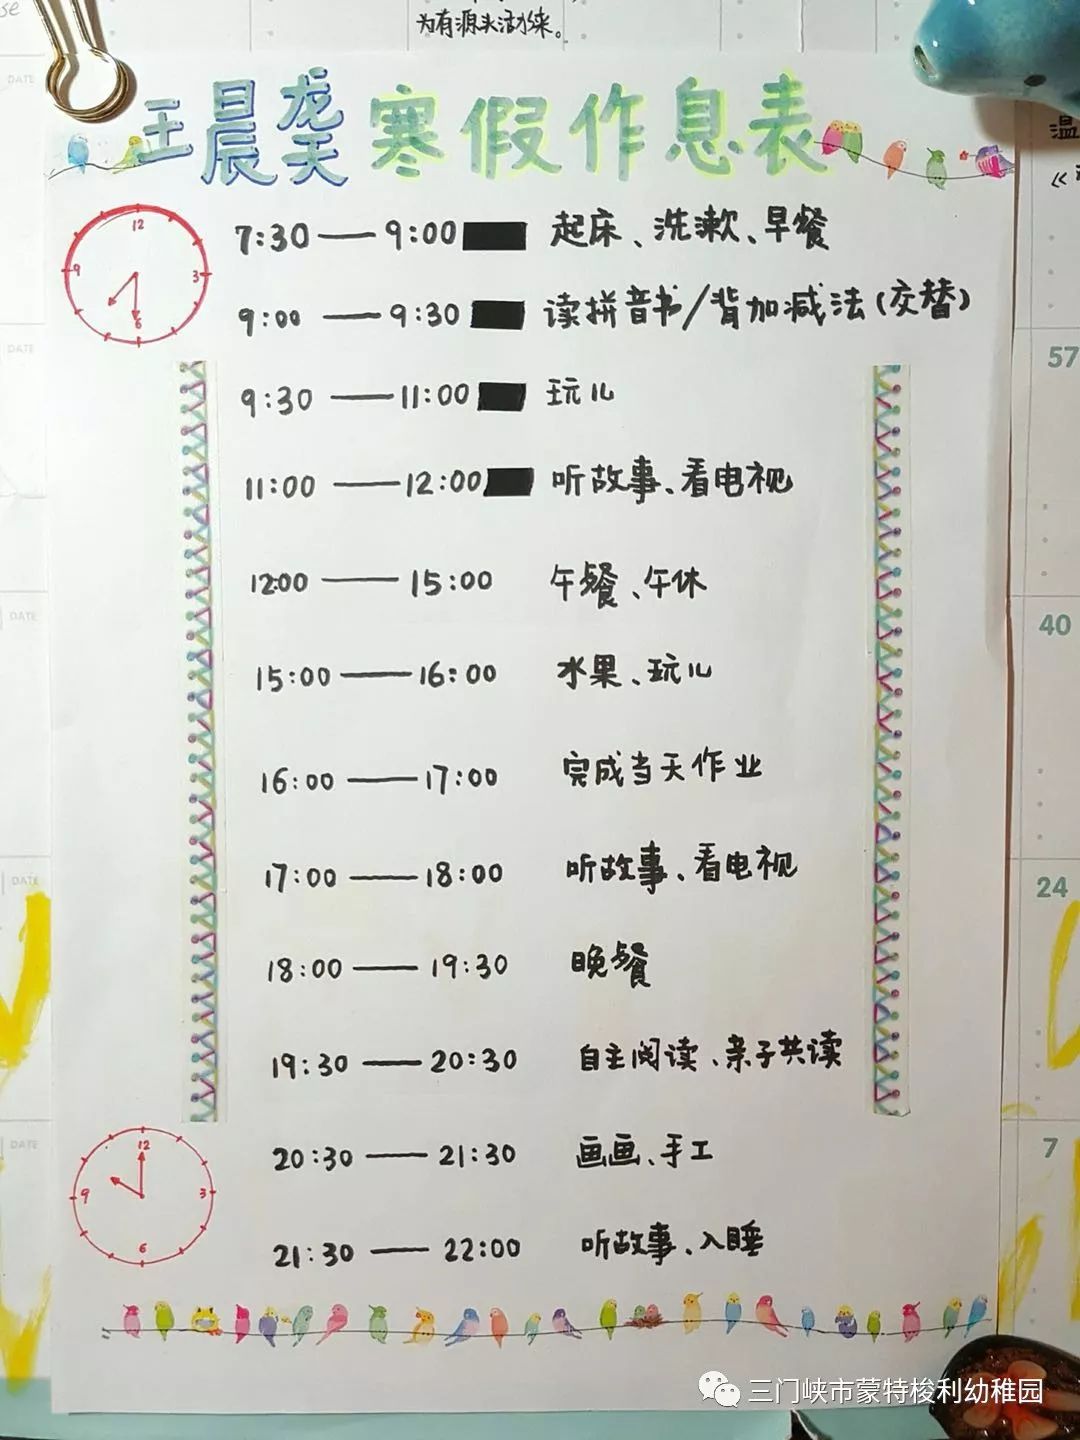 为有源头活水来。
王晨䶮寒假作息表
7:30——9:00 起床、洗漱、早餐
9:00——9:30 读拼音书/背加减法(交替)
9:30——11:00 玩儿
11:00——12:00 听故事、看电视
12:00——15:00 午餐、午休
15:00——16:00 水果、玩儿
16:00——17:00 完成当天作业
17:00——18:00 听故事、看电视
18:00——19:30 晚餐
19:30——20:30 自主阅读、亲子共读
20:30——21:30 画画、手工
21:30——22:00 听故事、入睡
12
3
6
9
12
3
6
9
DATE
DATE
DATE
DATE
DATE
温
57
40
24
7
三门峡市蒙特梭利幼稚园